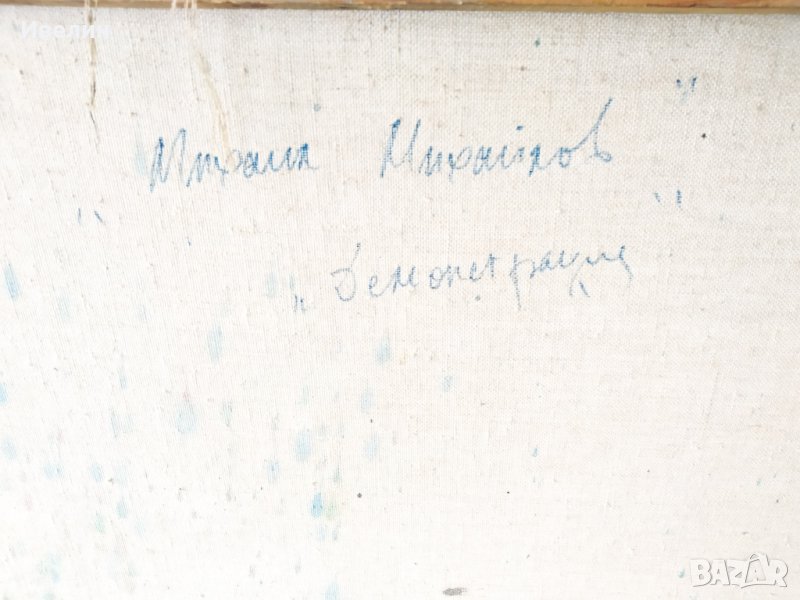 Ивелин
Михаил Михайлов "
"
"
„Демонстрация
BAZAR